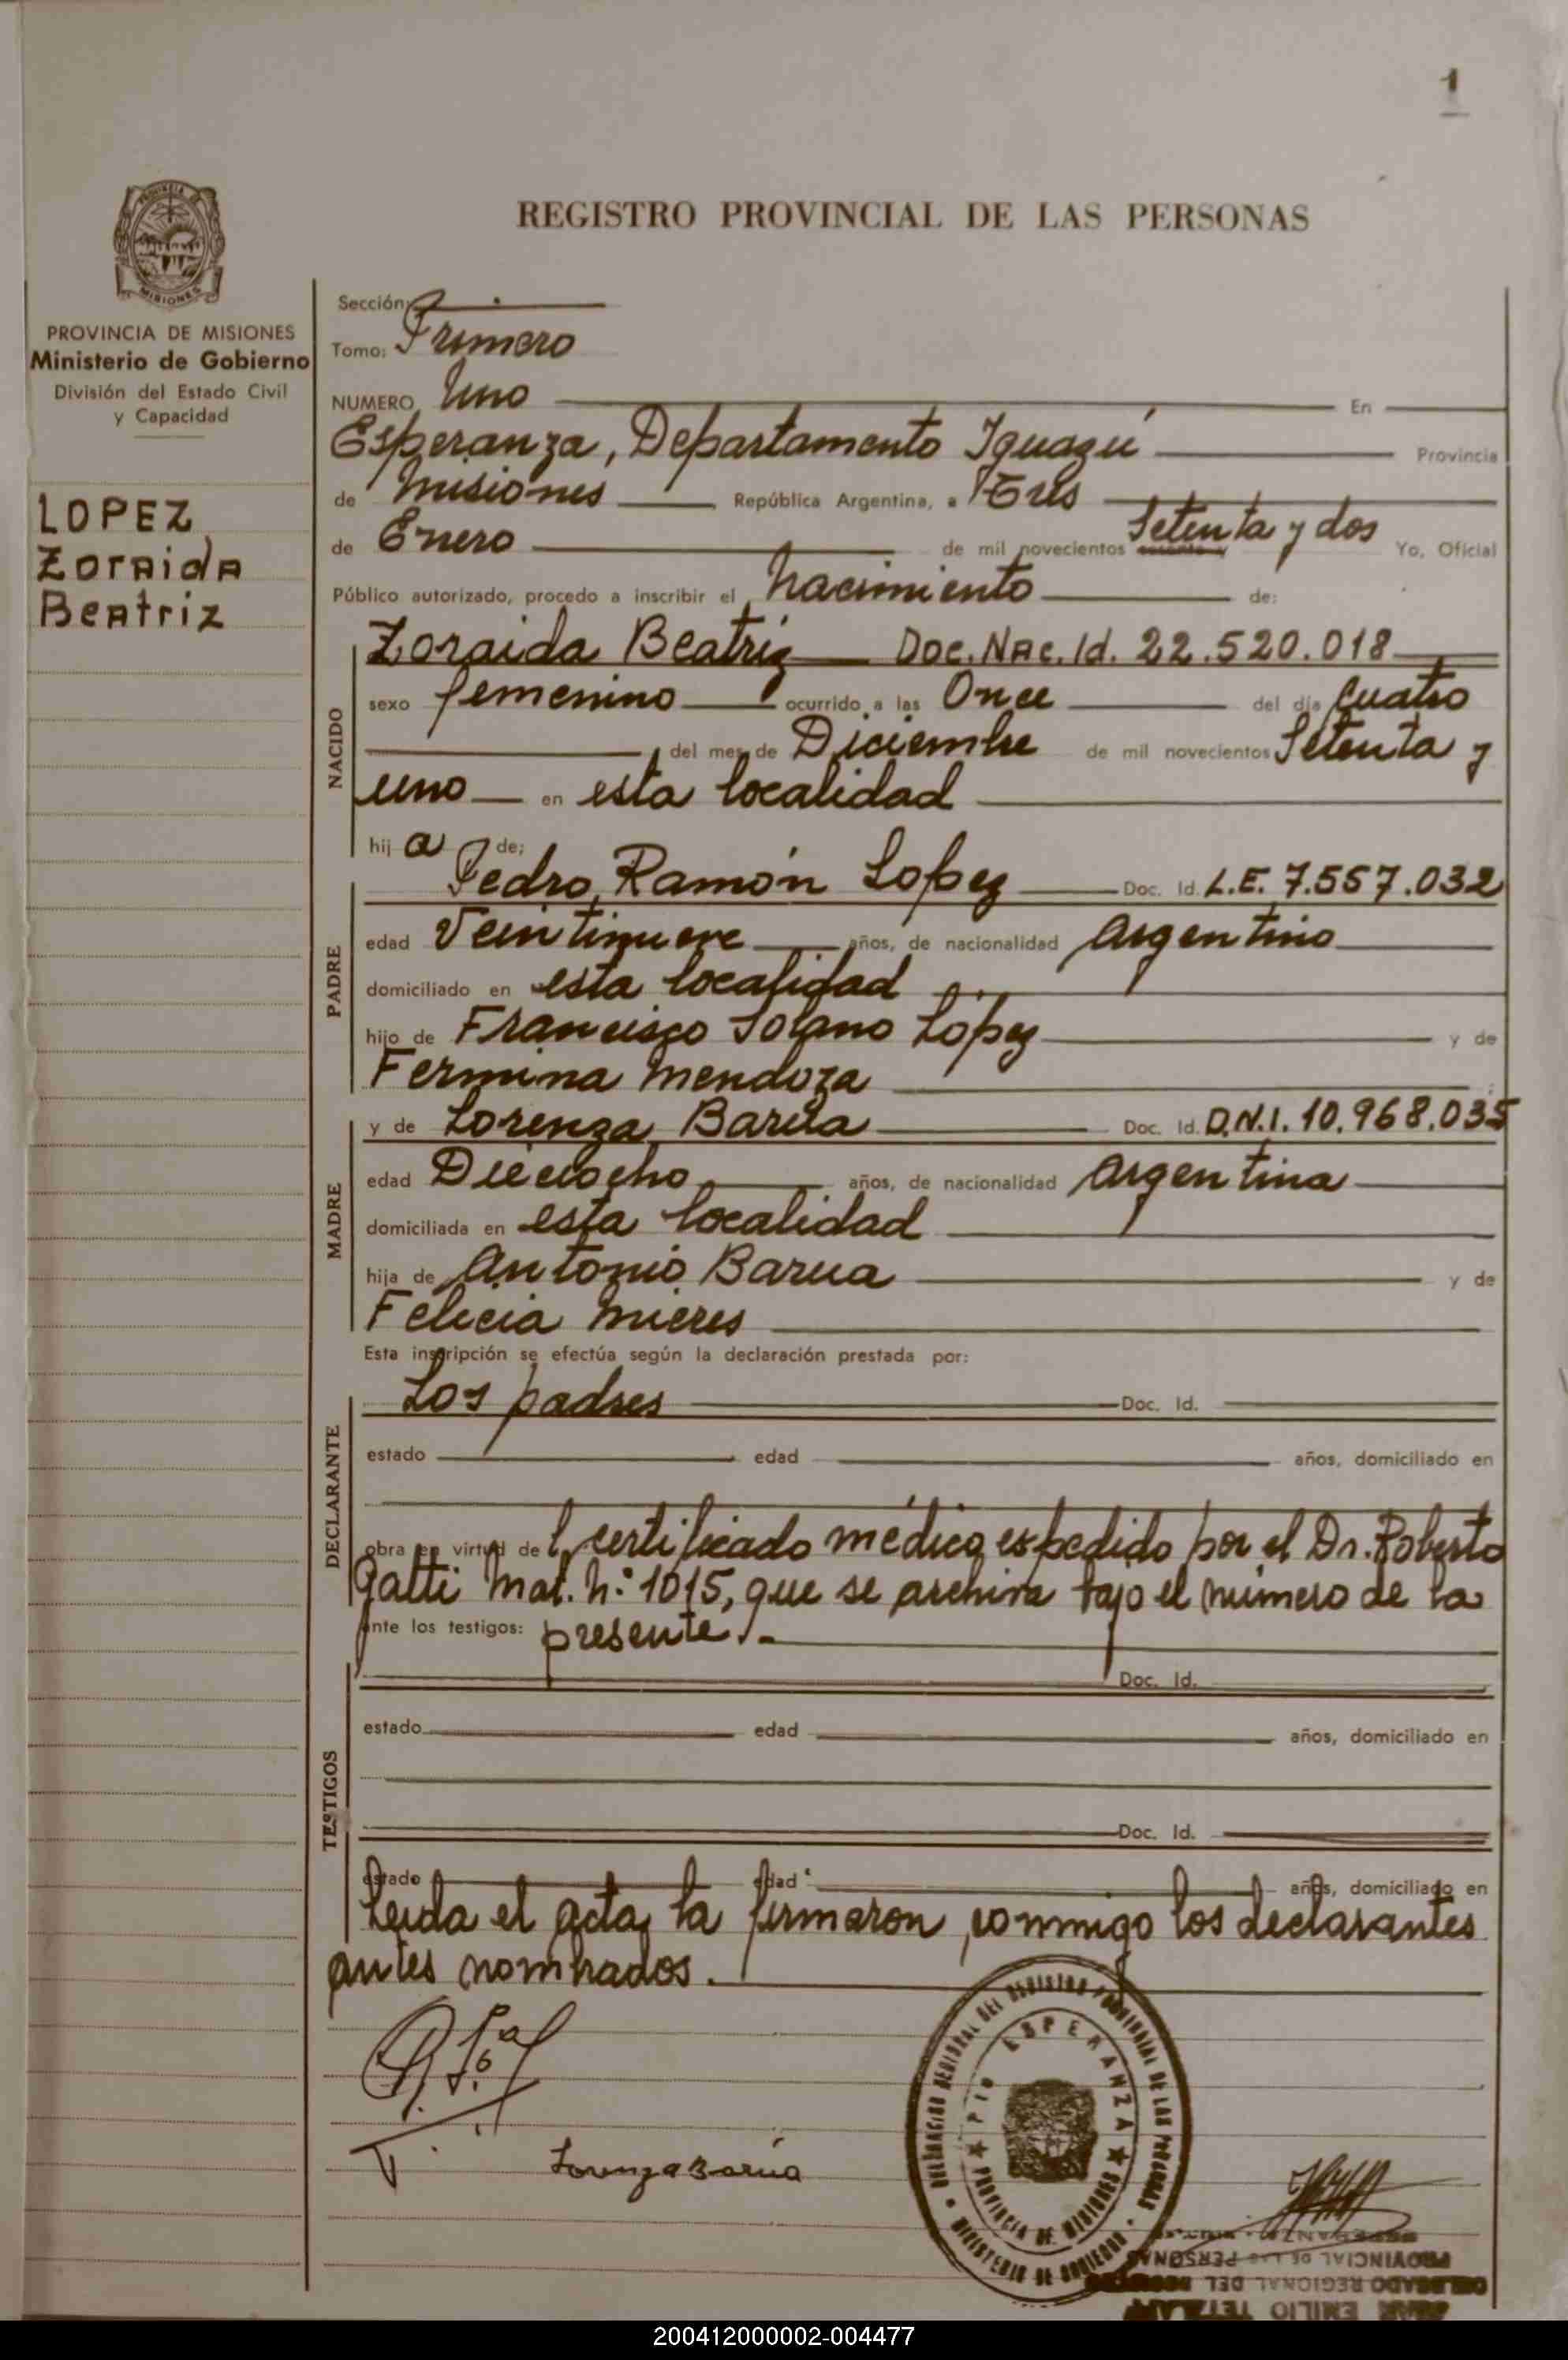 1
REGISTRO PROVINCIAL DE LAS PERSONAS
PROVINCIA DE MISIONES
Ministerio de Gobierno
División del Estado Civil
y Capacidad
LOPEZ
Zoraida
Beatriz
Sección:
Tomo: Primero
NUMERO Uno En
Esperanza, Departamento Iguazú Provincia
de Misiones República Argentina, a Tres
de Enero de mil novecientos Setenta y dos Yo, Oficial
Público autorizado, procedo a inscribir el Nacimiento de:
NACIDO
Zoraida Beatriz Doc. Nac. Id. 22.520.018
sexo femenino ocurrido a las Once del día Cuatro
del mes de Diciembre de mil novecientos Setenta y
uno en esta localidad
hij a de:
PADRE
Pedro Ramón Lopez Doc. Id. L.E. 7.557.032
edad Veintinueve años, de nacionalidad Argentino
domiciliado en esta localidad
hijo de Francisco Solano López y de
Fermina Mendoza
MADRE
y de Lorenza Barúa Doc. Id. D.N.I. 10.968.035
edad Dieciocho años, de nacionalidad Argentina
domiciliada en esta localidad
hija de Antonio Barua y de
Felicia Mieres
Esta inscripción se efectúa según la declaración prestada por:
DECLARANTE
Los padres Doc. Id.
estado edad años, domiciliado en
obra en virtud del certificado médico espedido por el Dr. Roberto
Gatti Mat. N:º 1015, que se archiva bajo el número de la
ante los testigos: presente.-
TESTIGOS
Doc. Id.
estado edad años, domiciliado en
Doc. Id.
estado edad años, domiciliado en
Leida el acta, la firmaron conmigo los declarantes
antes nombrados.
Lorenza Barúa
DELEGACION REGIONAL DEL REGISTRO PROVINCIAL DE LAS PERSONAS
MINISTERIO DE GOBIERNO
PTO ESPERANZA
PROVINCIA DE MISIONES
PROVINCIAL DE LAS PERSONAS
DELEGADO REGIONAL DEL
EMILIO
200412000002-004477